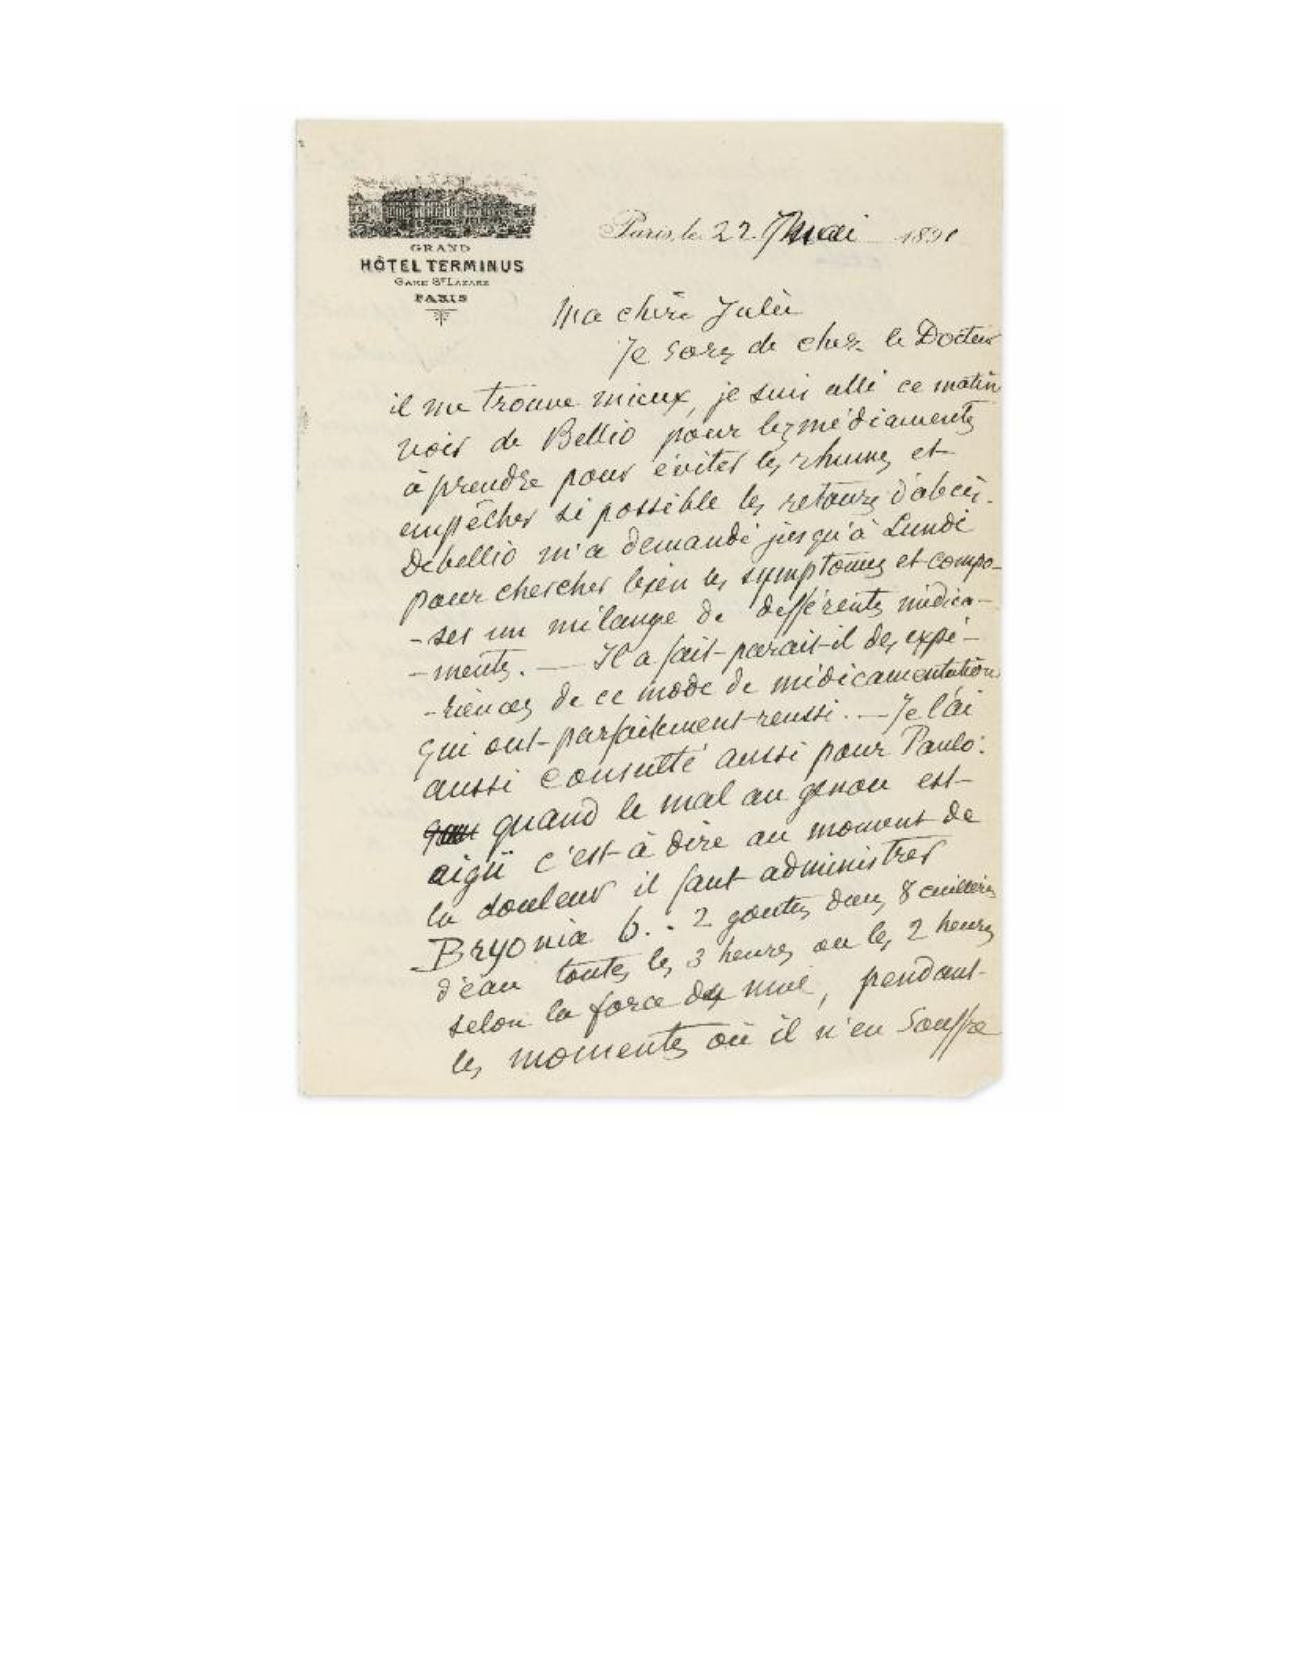 GRAND
HÔTEL TERMINUS
GARE ST LAZARE
PARIS
Paris, le 22 Mai 1891
Ma chère Julie
Je sors de chez le Docteur
il me trouve mieux, je suis allé ce matin
voir de Bellio pour les médicaments
à prendre pour éviter les rhumes et
empêcher si possible les retours d'abcès.
Debellio m'a demandé jusqu'à Lundi
pour chercher bien les symptômes et compo-
-ser un mélange de différents médica-
-ments. — Il a fait parait-il des expé-
-riences de ce mode de médicamentation
qui ont parfaitement reussi. — Je l'ai
aussi consulté aussi pour Paulo:
quand le mal au genou est
aigü c'est à dire au moment de
la douleur il faut administrer
Bryonia 6.. 2 gouttes dans 8 cuillères
d'eau toutes les 3 heures ou les 2 heures
selon la force du mal, pendant
les moments où il n'en souffre